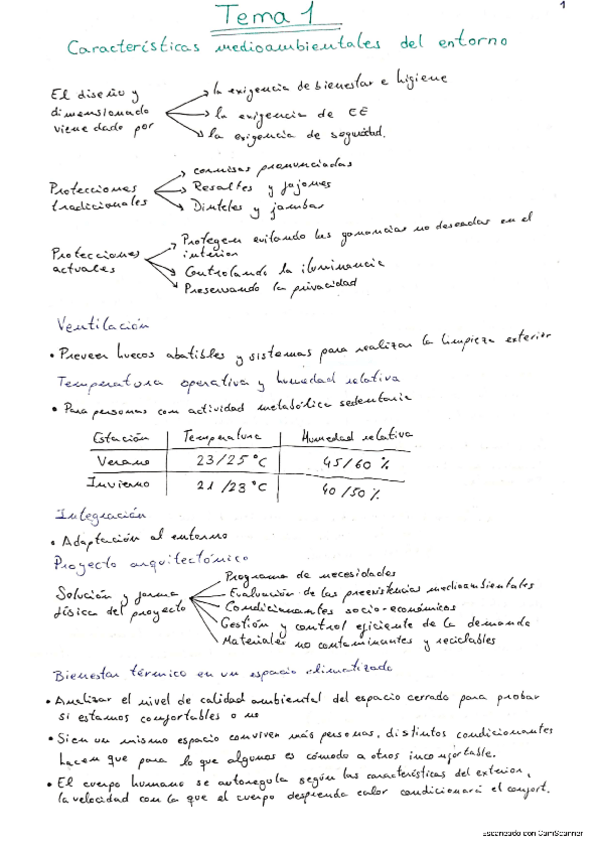 1
Tema 1
Características medioambientales del entorno
El diseño y
dimensionado
viene dado por
la exigencia de bienestar e higiene
la exigencia de EE
la exigencia de seguridad.
Protecciones
tradicionales
cornisas pronunciadas
Resaltes y jajones
Dinteles y jambar
Protecciones
actuales
Protegen evitando las ganancias no deseadas en el
interior
Controlando la iluminancia
Preservando la privacidad
Ventilación
• Preveer huecos abatibles y sistemas para realizar la limpieza exterior
Temperatura operativa y humedad relativa
• Para personas con actividad metabólica sedentaria
Estación Temperatura Humedad relativa
Verano 23/25 °C 45/60 %
Invierno 21/23 °C 40/50 %
Integración
• Adaptación al entorno
Proyecto arquitectónico
Solución y forma
física del proyecto
Programa de necesidades
Evaluación de las preexistencias medioambientales
Condicionantes socio-económicos
Gestión y control eficiente de la demanda
Materiales no contaminantes y reciclables
Bienestar térmico en un espacio climatizado
• Analizar el nivel de calidad ambiental del espacio cerrado para probar
si estamos confortables o no
• Si en un mismo espacio conviven más personas, distintos condicionantes
hacen que para lo que algunos es cómodo a otros inconfortable.
• El cuerpo humano se autoregula según las características del exterior,
la velocidad con la que el cuerpo desprenda calor condicionará el confort.
Escaneado con CamScanner